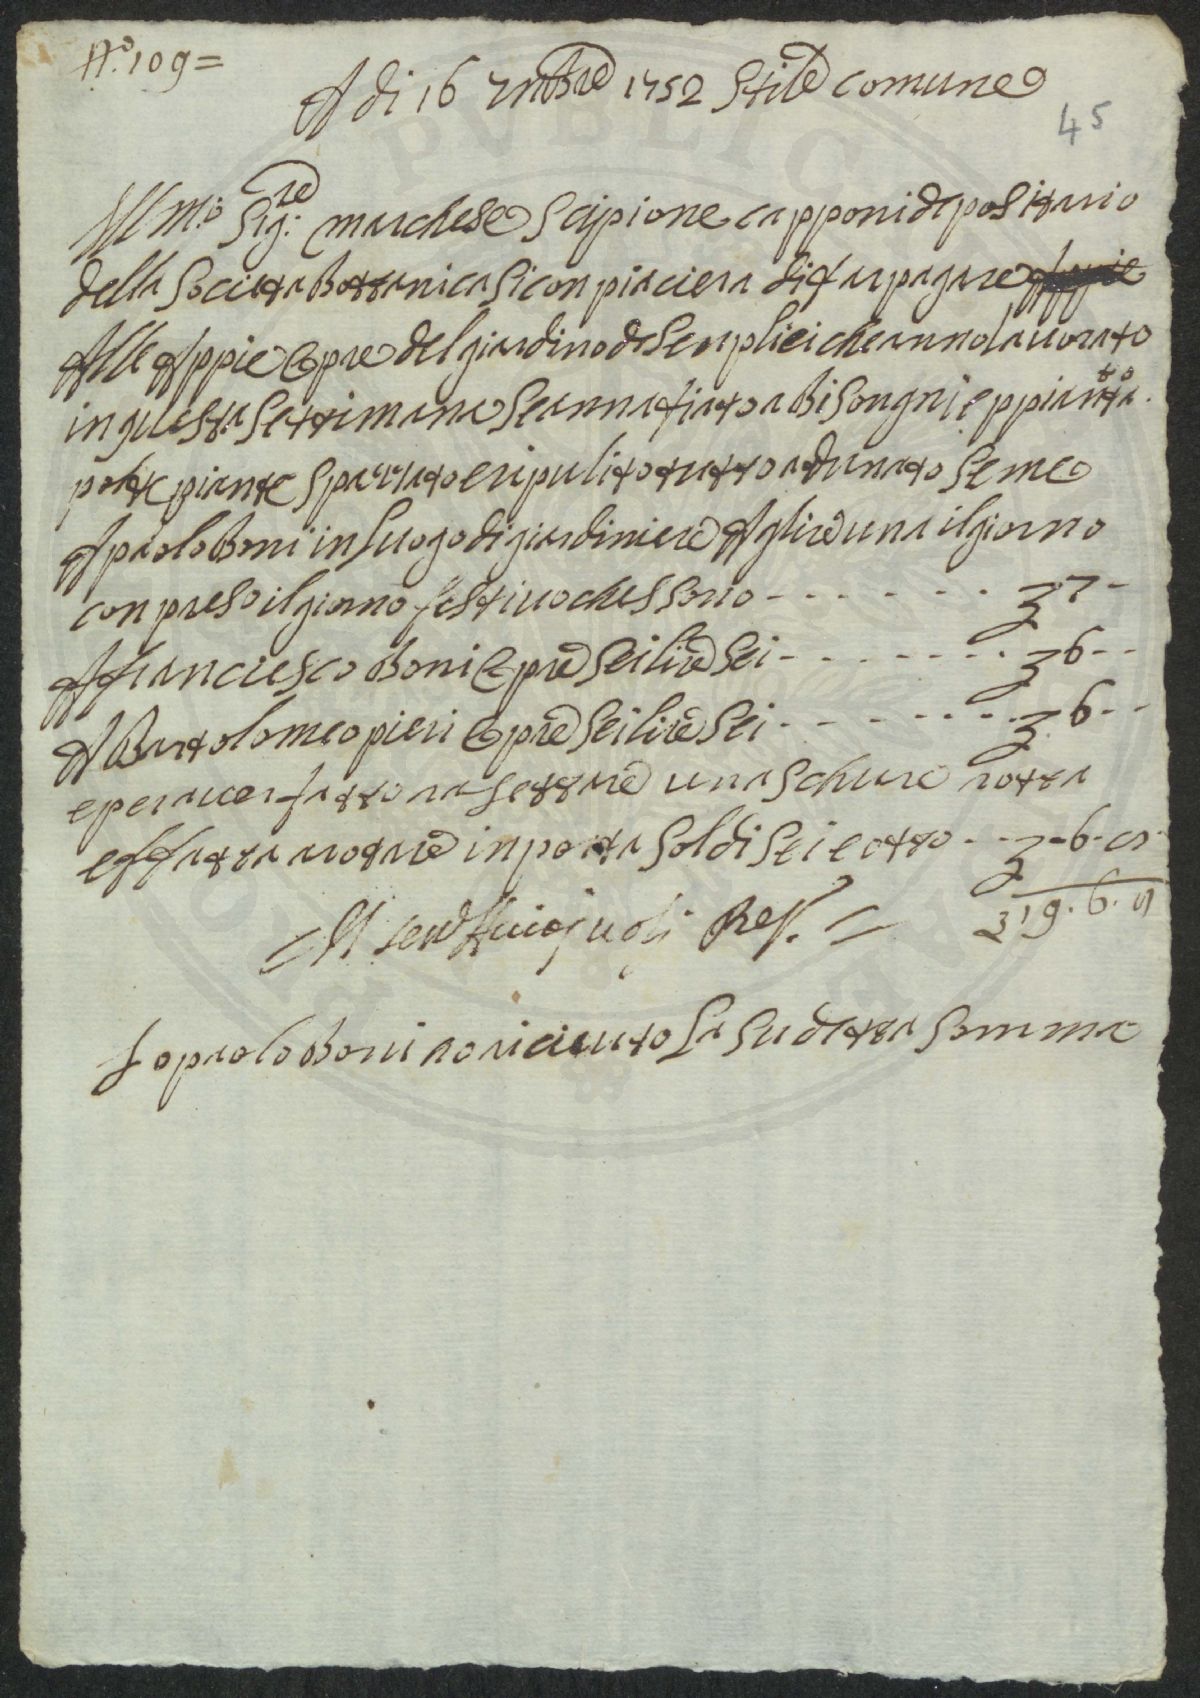 N.o 109 =
A di 16 7mbre 1752 Stile comune
45
Ill.mo Sig.re marchese Scipione capponi depositario
della Societa Bottanica Si conpiaciera di far pagare
Alle Appie Opre del giardino de Senplici che anno lavorato
in questa Settimana Se annafiato a Bisongni e ppiantato
polte piante Spazzato e ripulito tutto adunato Seme
A paolo Boni in luogo di giardiniere A lire una il giorno
conpreso il giorno festivo che ssono - - - - - - 7 -
A franciesco Boni Opre Sei lire Sei - - - - - - 6 - -
A Bartolomeo pieri Opre Sei lire Sei - - - - - - 6 - -
e per aver fatto ra settare una Schure rotta
e ffatta arotare inporta Soldi Sei e otto - - - 6 - 8
19. 6. 8
Rev.
Io paolo Boni o riceuto La Sudetta Somma
PVBLIC